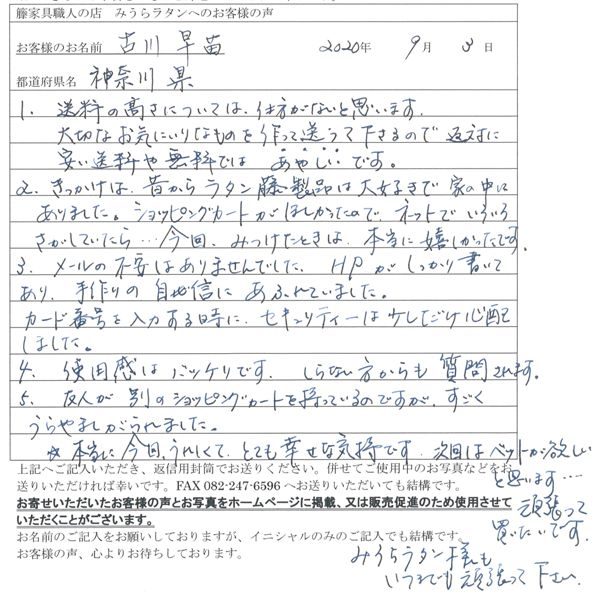 籐家具職人の店　みうらラタンへのお客様の声
お客様のお名前　古川　早苗　2020年　9月　3日
都道府県名　神奈川県
1. 送料の高さについては、仕方がないと思います。
大切なお気にいりなものを作って送って下さるので 返対に
安い送料や無料では あやしいです。
2. きっかけは、昔から ラタン 籐製品は大好きで 家の中に
ありました。ショッピングカートがほしかったので、ネットで いろいろ
さがしていたら…今回、みつけたときは、本当に嬉しかったです。
3. メールの不安はありませんでした。HPが しっかり書いて
あり、手作りの自信に あふれていました。
カード番号を入力する時に、セキュリティーは少しだけ心配
しました。
4. 使用感はバッチリです。しらない方からも質問されます。
5. 友人が 別のショッピングカートを持っているのですが、すごく
うらやましがられました。
☆本当に今回、うれしくて、とても幸せな気持です。次回はベットが欲しい
と思います‥‥
頑張って
買いたいです。
みうらラタン様も
いつまでも頑張って下さい。
上記へご記入いただき、返信用封筒でお送りください。併せてご使用中のお写真などをお
送りいただければ幸いです。FAX 082-247-6596 へお送りいただいても結構です。
お寄せいただいたお客様の声とお写真をホームページに掲載、又は販売促進のため使用させて
いただくことがございます。
お名前のご記入をお願いしておりますが、イニシャルのみのご記入でも結構です。
お客様の声、心よりお待ちしております。